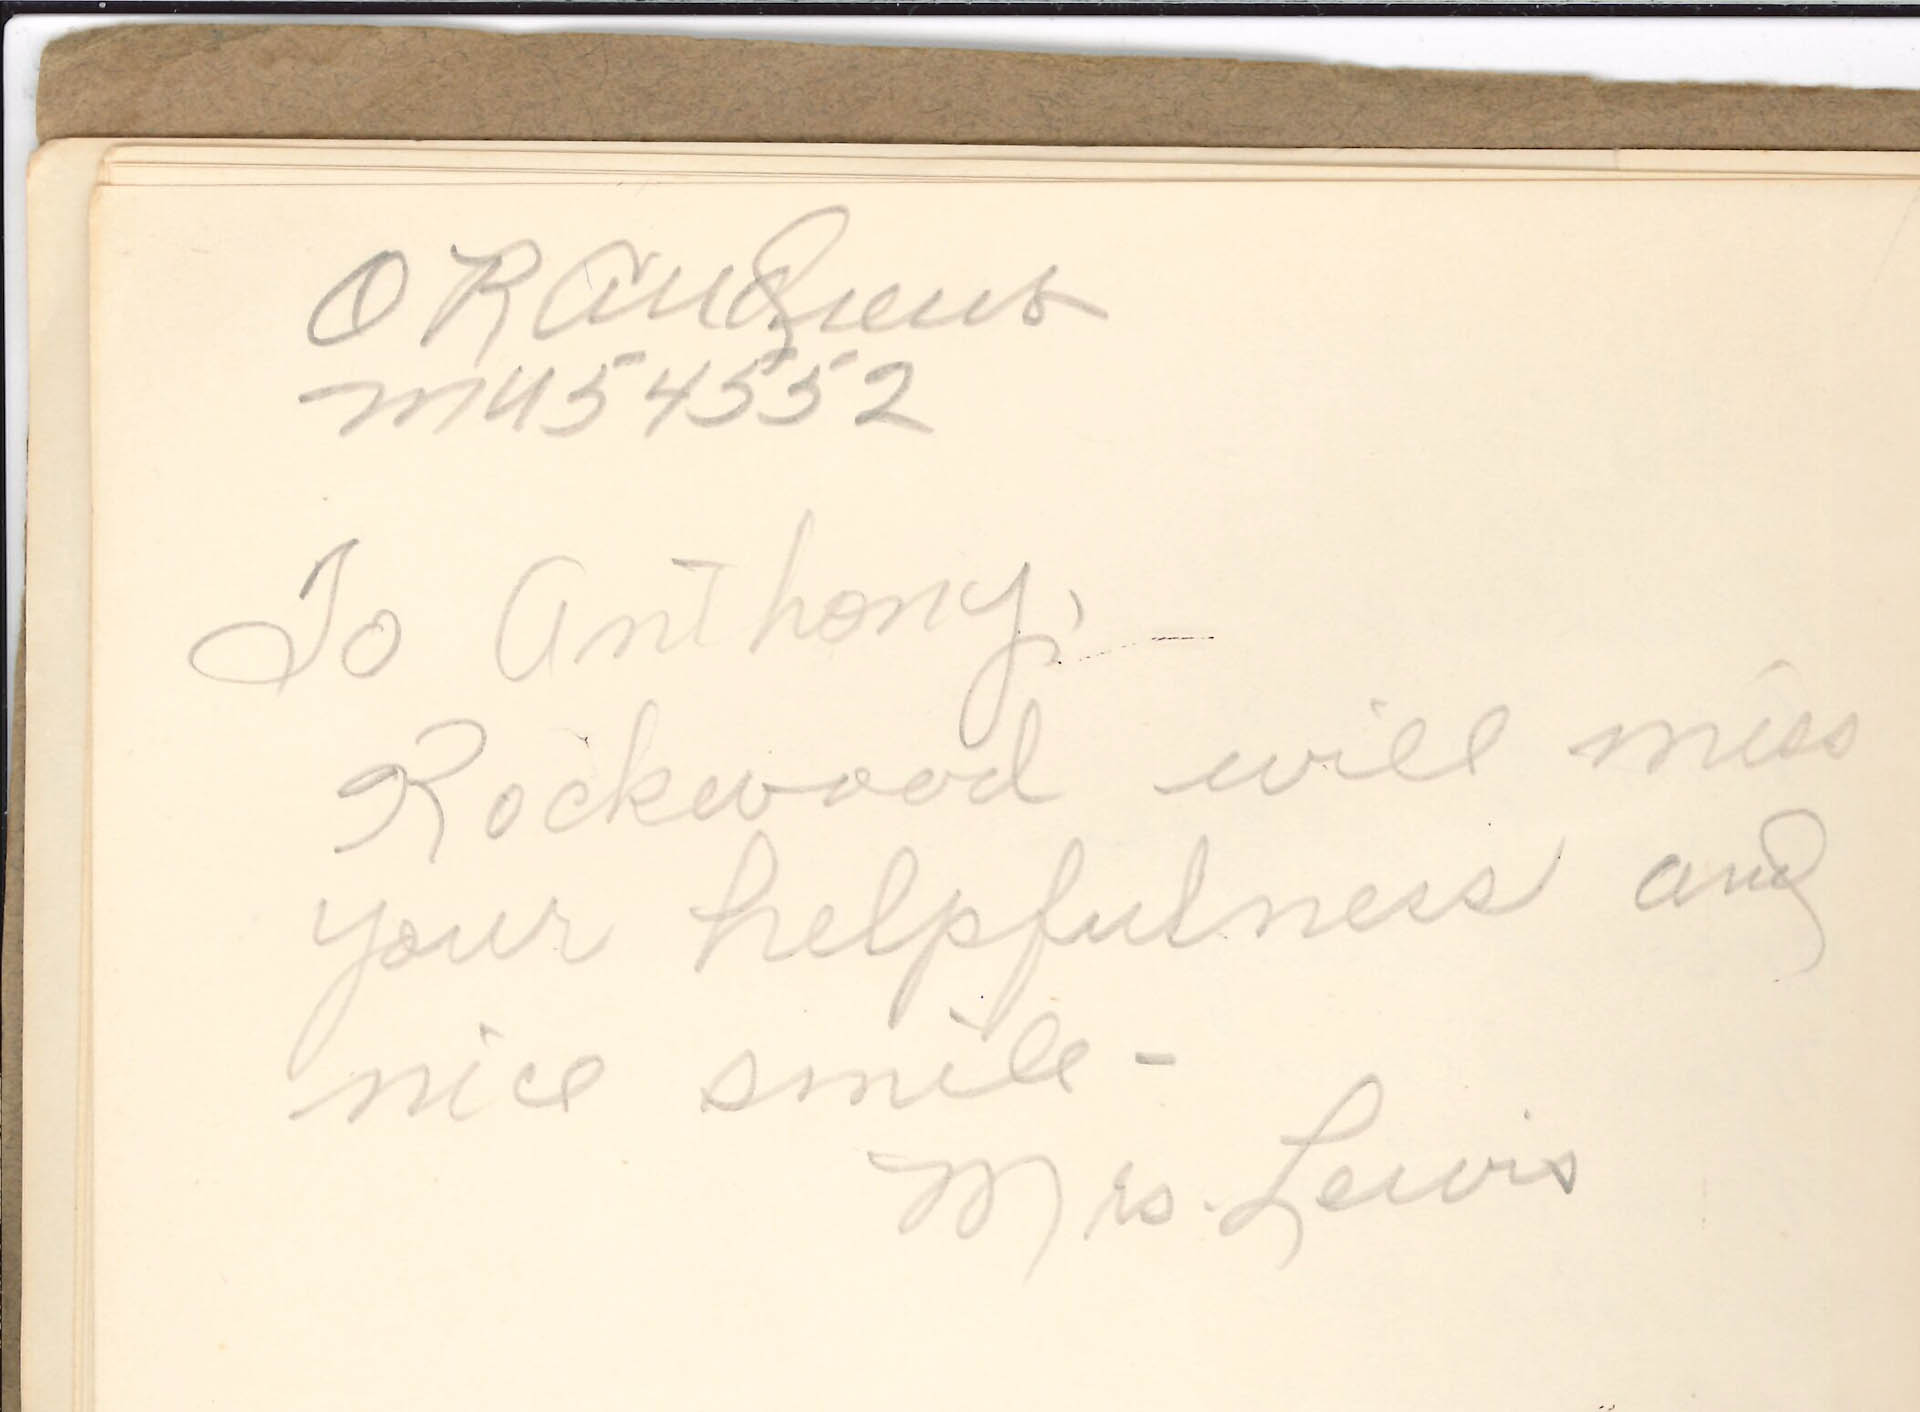 O R Andrews
MU54552
To Anthony,
Rockwood will miss
your helpfulness and
nice smile -
Mrs. Lewis